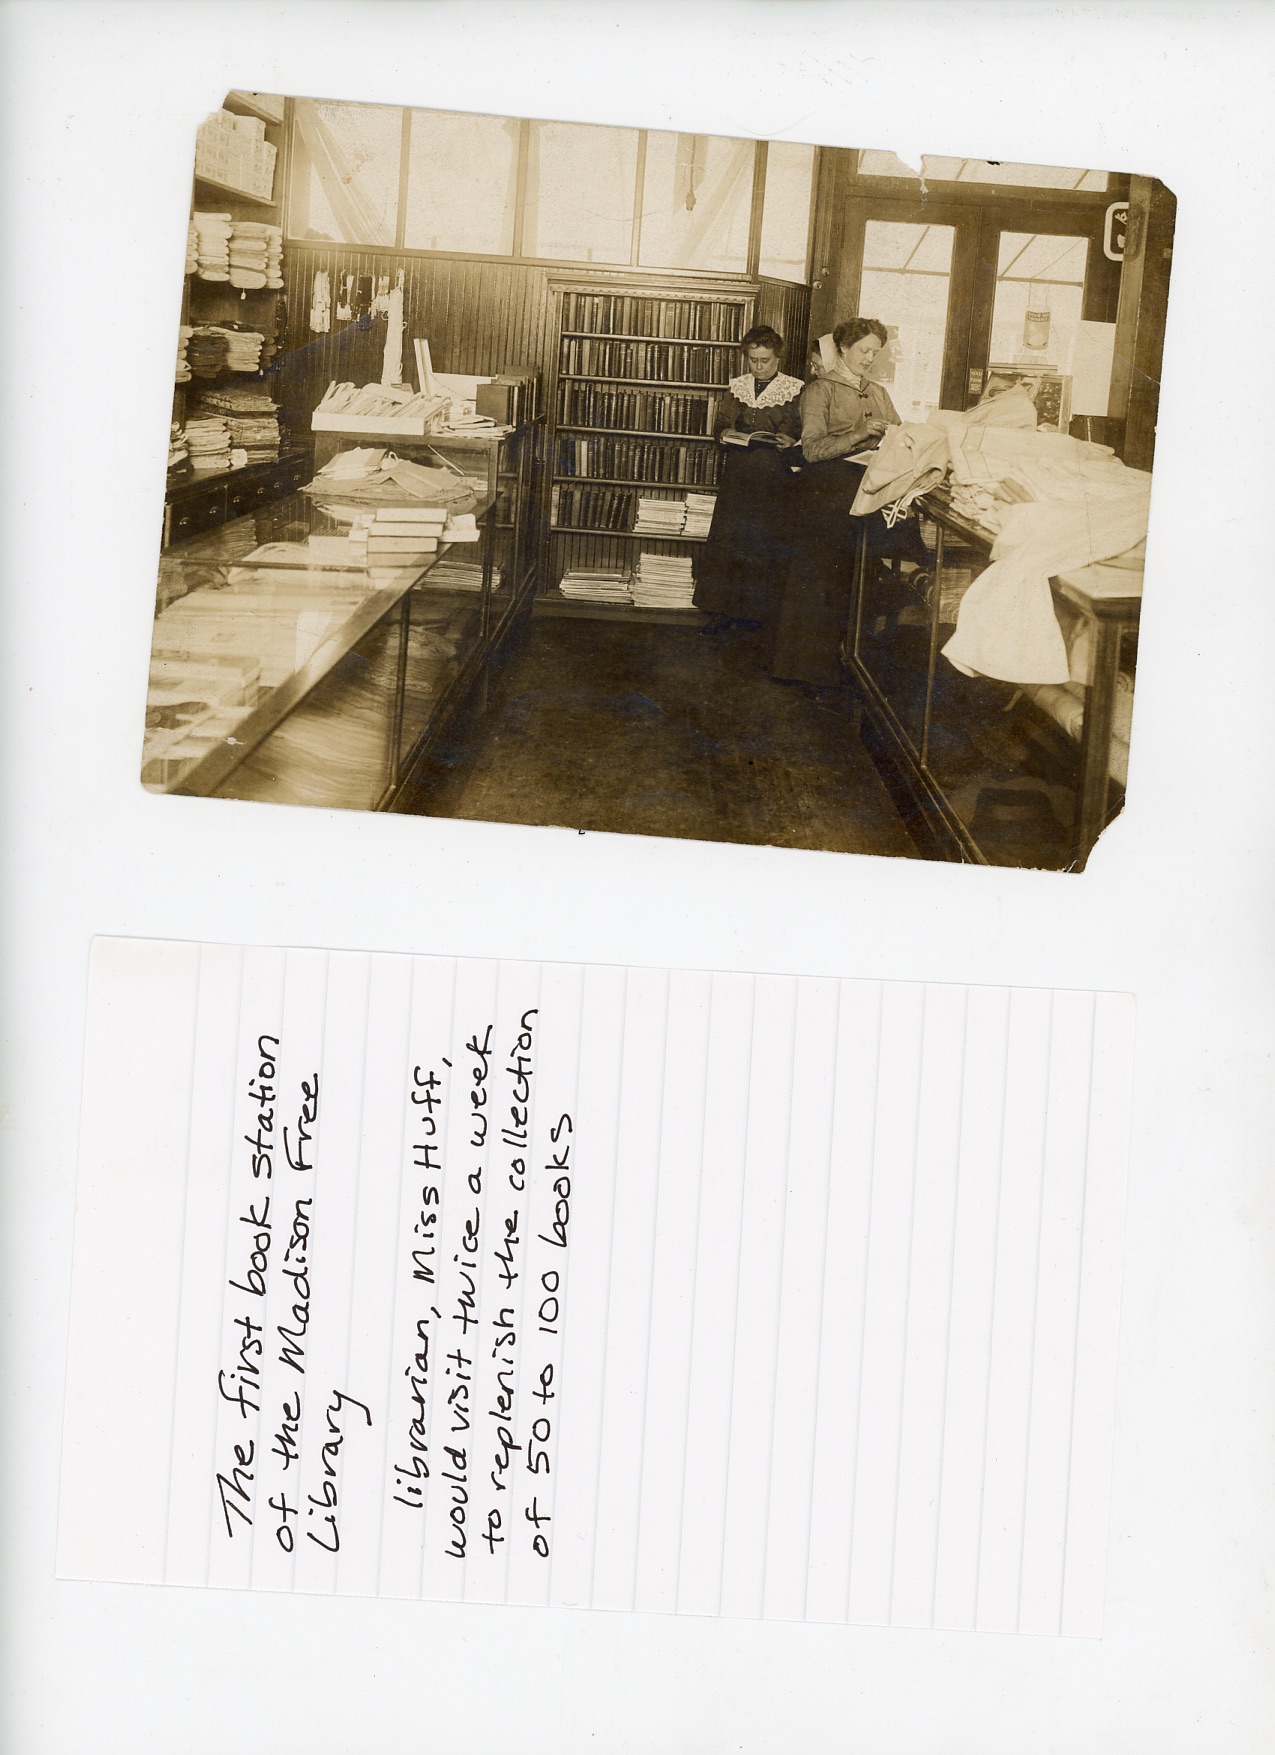 The first book station
of the Madison Free
Library
librarian, Miss Huff,
would visit twice a week
to replenish the collection
of 50 to 100 books